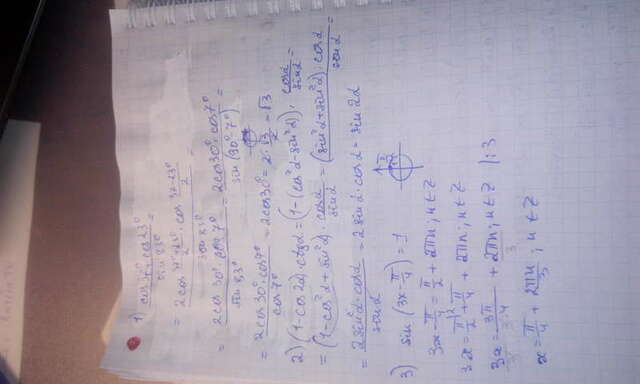 1) cos37°+cos23° / sin83° =
= 2cos (37°+23°)/2 · cos (37°-23°)/2 / sin83° =
= 2cos30° cos7° / sin83° = 2cos30°·cos7° / sin(90°-7°) =
= 2cos30°·cos7° / cos7° = 2cos30° = 2·√3/2 = √3
2) (1-cos2α)·ctgα = (1-(cos²α-sin²α))·cosα/sinα =
= (1-cos²α+sin²α)·cosα/sinα = (sin²α+sin²α)·cosα/sinα =
= 2sin²α·cosα / sinα = 2sinα·cosα = sin2α
3) sin(3x-π/4)=1
3x-π/4=π/2+2πn; n∈Z
3x=π/2+π/4+2πn; n∈Z
3x=3π/4+2πn; n∈Z |:3
x=π/4+2πn/3; n∈Z